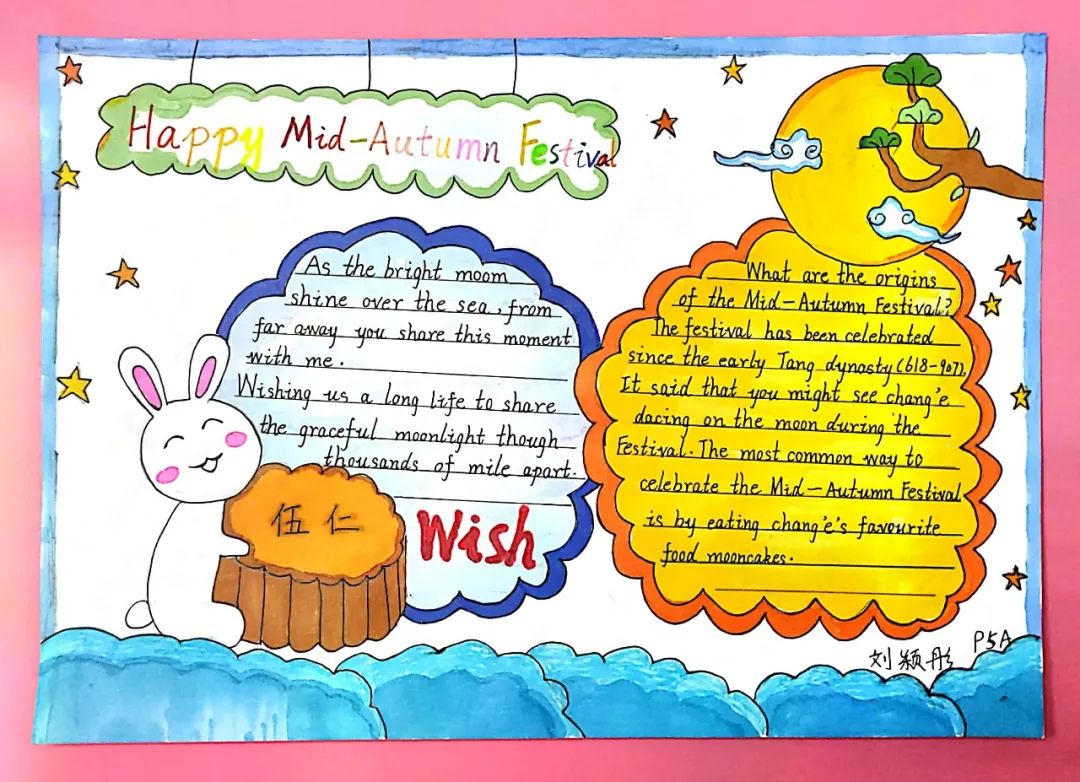 Happy Mid-Autumn Festival
As the bright moom
shine over the sea, from
far away you share this moment
with me.
Wishing us a long life to share
the graceful moonlight though
thousands of mile apart.
Wish
伍仁
What are the origins
of the Mid-Autumn Festival?
The festival has been celebrated
since the early Tang dynasty(618-907).
It said that you might see chang'e
dacing on the moon during the
Festival. The most common way to
celebrate the Mid-Autumn Festival
is by eating chang'e's favourite
food mooncakes.
刘颖彤 P5A